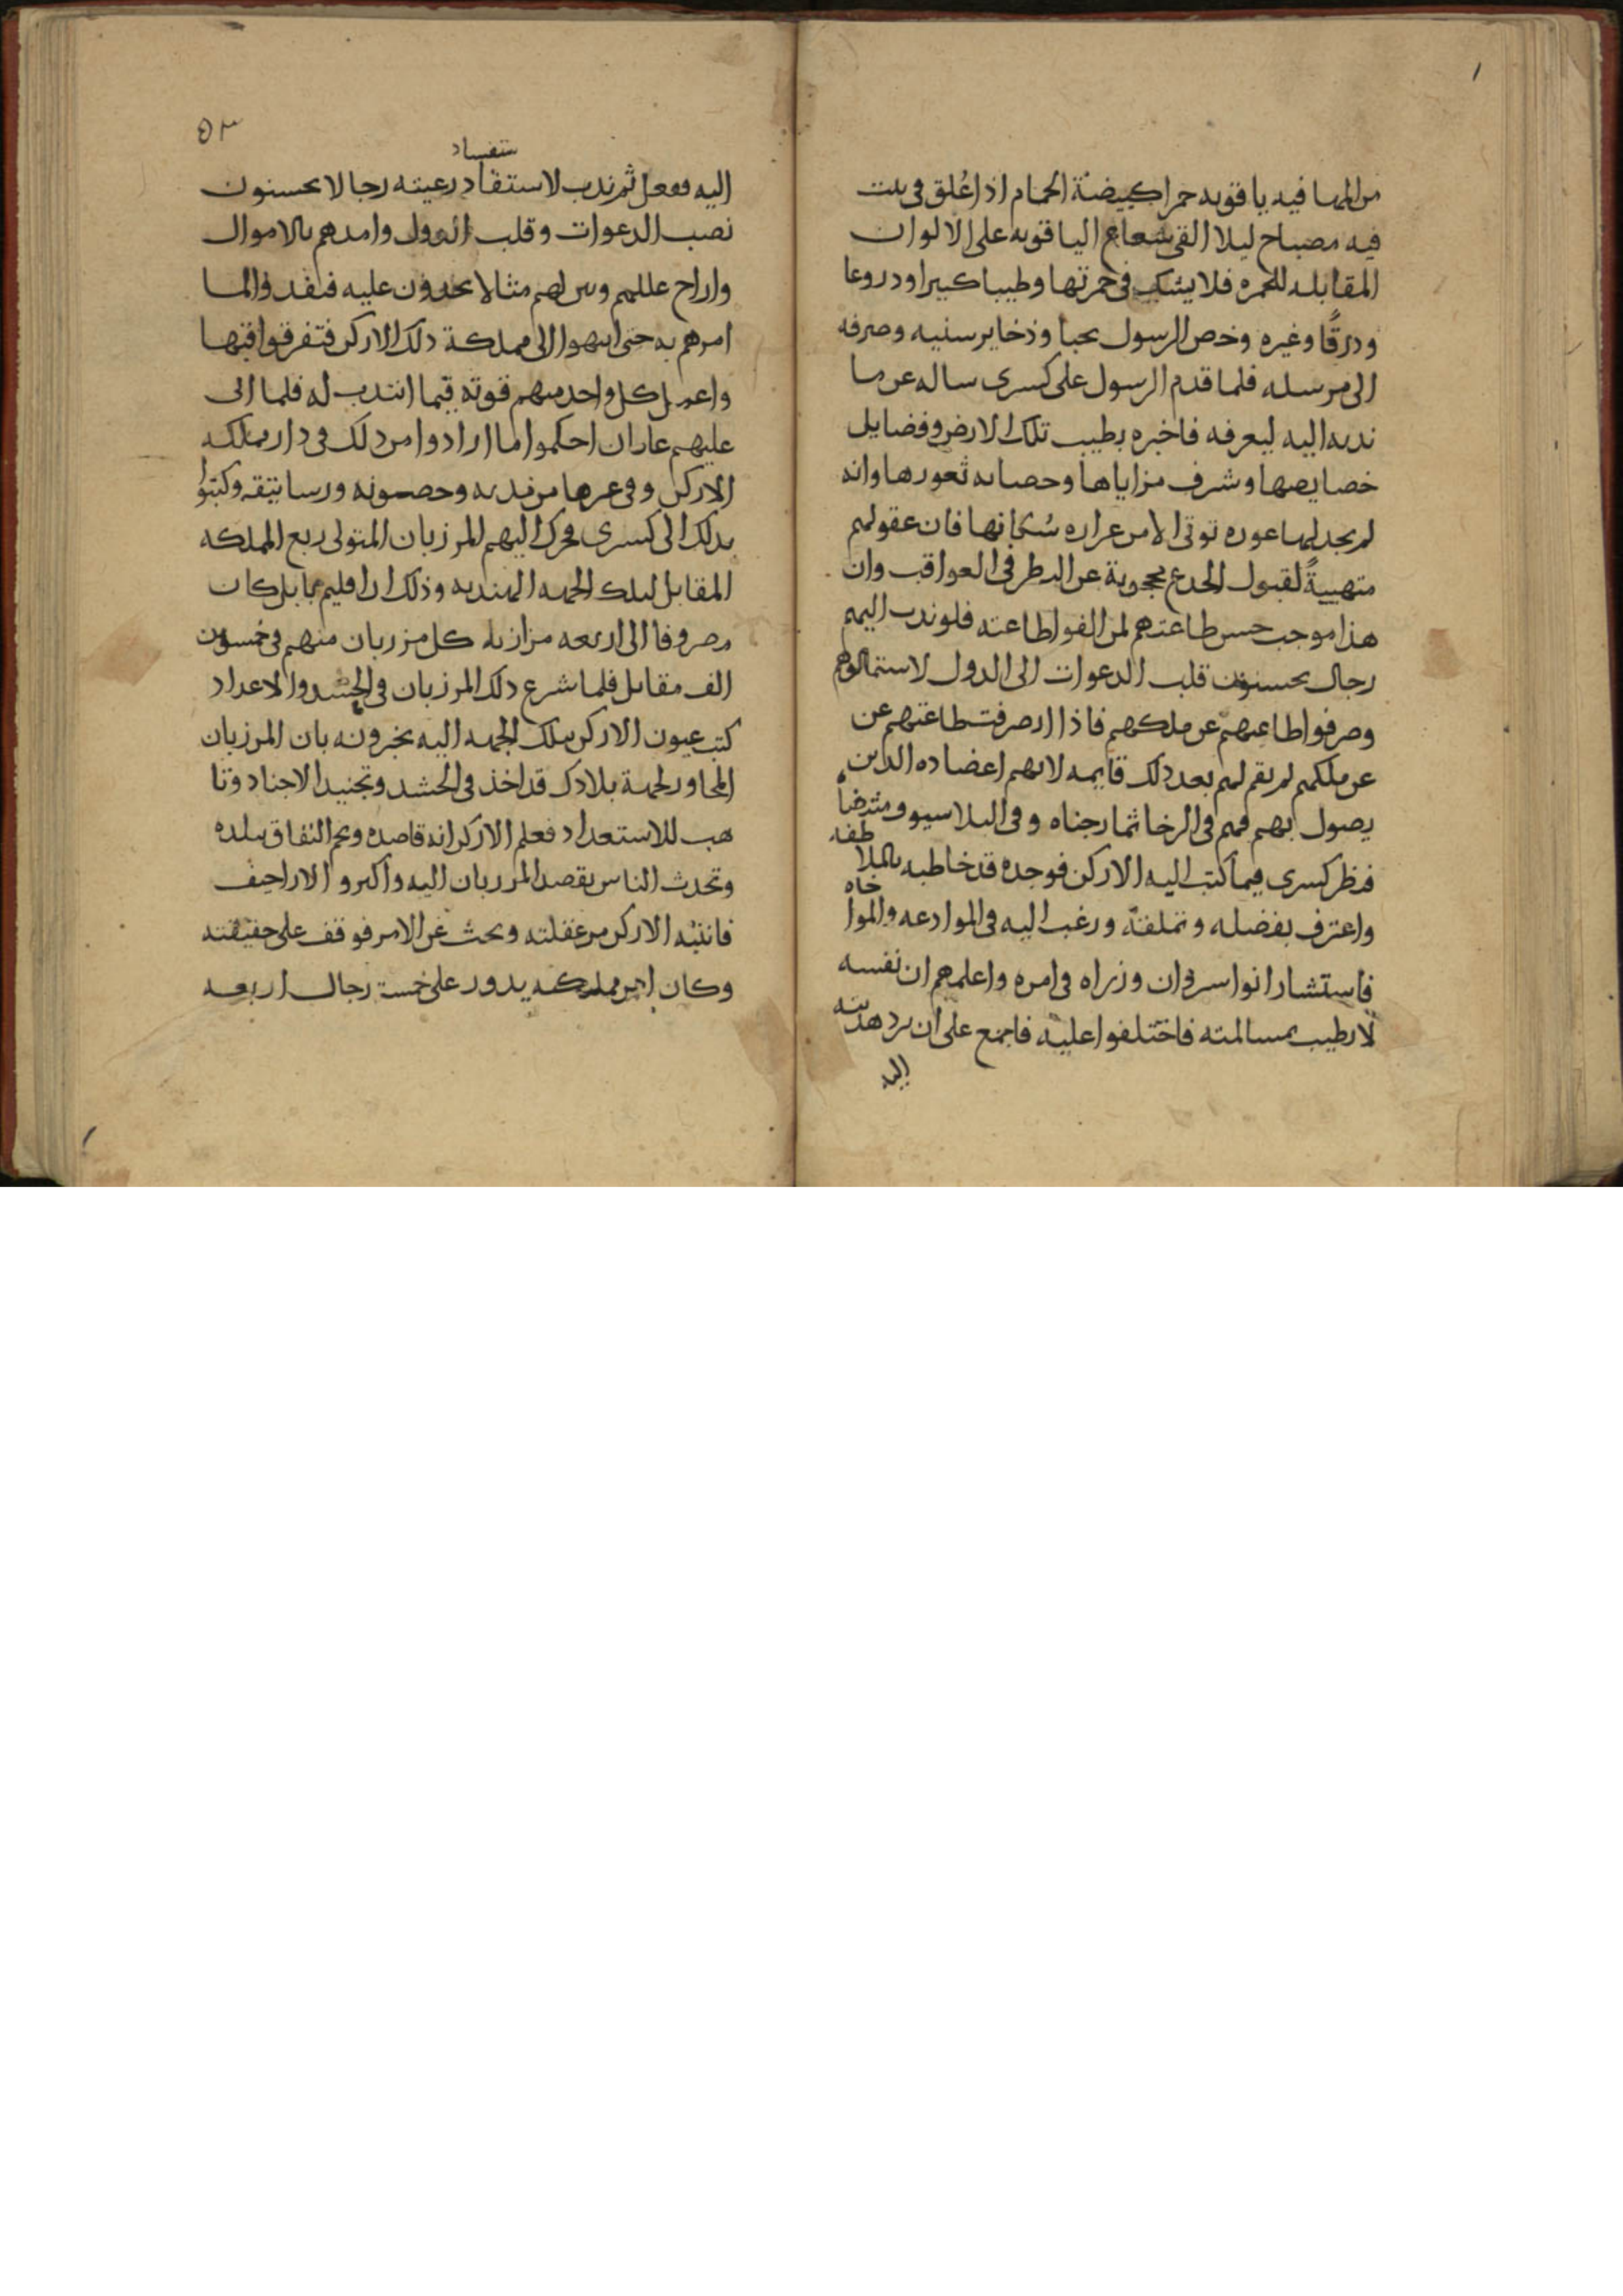 من المها فيه ياقوته حمرا كبيضة الحمام اذا عُلق فى بيت
فيه مصباح ليلا القى شعاع الياقوته على الالوان
المقابله للحمره فلا يشك فى حمرتها وطيبا كبيرا ودروعا
ودرقًا وغيره وخص الرسول بحبا وذخاير سنيه وصرفه
الى مرسله فلما قدم الرسول على كسرى ساله عن ما
ندبه اليه ليعرفه فاخبره بطيب تلك الارض وفضايل
خصايصها وشرف مزاياها وحصانه ثغورها وانه
لم يجد لها عوره توتى الا من غراره سُكانها فان عقولهم
متهييةً لقبول الخدع محجوبة عن النظر فى العواقب وان
هذا موجب حسن طاعتهم لمن الفوا طاعته فلو ندب اليهم
رجال يحسنون قلب الدعوات الى الدول لاستمالوهم
وصرفوا طاعتهم عن ملكهم فاذا انصرفت طاعتهم عن
عن ملكهم لم يقم لهم بعد ذلك قايمه لانهم اعضاده الذين
يصول بهم فهم فى الرخا ثمار جناه وفى البلا سيوف منتضاه
فنظر كسرى فيما كتب اليه الاركن فوجده قد خاطبه بالملاطفه
واعترف بفضله وتملقه ورغب اليه فى الموادعه والمواخاه
فاستشار انوا سروان وزراه فى امره واعلمهم ان نفسه
لا تطيب بمسالمته فاختلفوا عليه فاجمع على ان يرد هديته
اليه
٥٣
ستفساد
اليه ففعل ثم ندب لاستقاد رعيته رجالا يحسنون
نصب الدعوات وقلب الدول وامدهم بالاموال
وازاح عللهم وبين لهم مثالا يحذون عليه فنفذوا لما
امرهم به حتى انتهوا الى مملكة ذلك الاركن فتفرقوا فيها
واعمل كل واحد منهم قوته فيما انتدب له فلما اتى
عليهم عامان احكموا ما ارادوا من ذلك فى دار مملكه
الاركن وفى غيرها من مدنه وحصونه ورساتيقه وكتبوا
بذلك الى كسرى فحرك اليهم المرزبان المتولى ربع المملكه
المقابل لتلك الجهه الهنديه وذلك ان اقليم بابل كان
مصروفا الى اربعه مرازبه كل مرزبان منهم فى خمسون
الف مقاتل فلما شرع ذلك المرزبان فى الحشد والاعداد
كتب عيون الاركن بتلك الجهه اليه يخبرونه بان المرزبان
المجاور لجهة بلادك قد اخذ فى الحشد وتجنيد الاجناد وتا
هب للاستعداد فعلم الاركن انه قاصده ونجم النفاق ببلده
وتحدث الناس بقصد المرزبان اليه واكثروا الاراجيف
فانتبه الاركن من غفلته وبحث عن الامر فوقف على حقيقته
وكان امر مملكته يدور على خمسة رجال اربعه